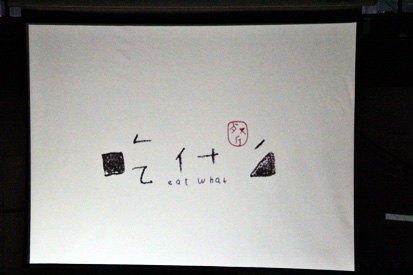 吃什么
eat what